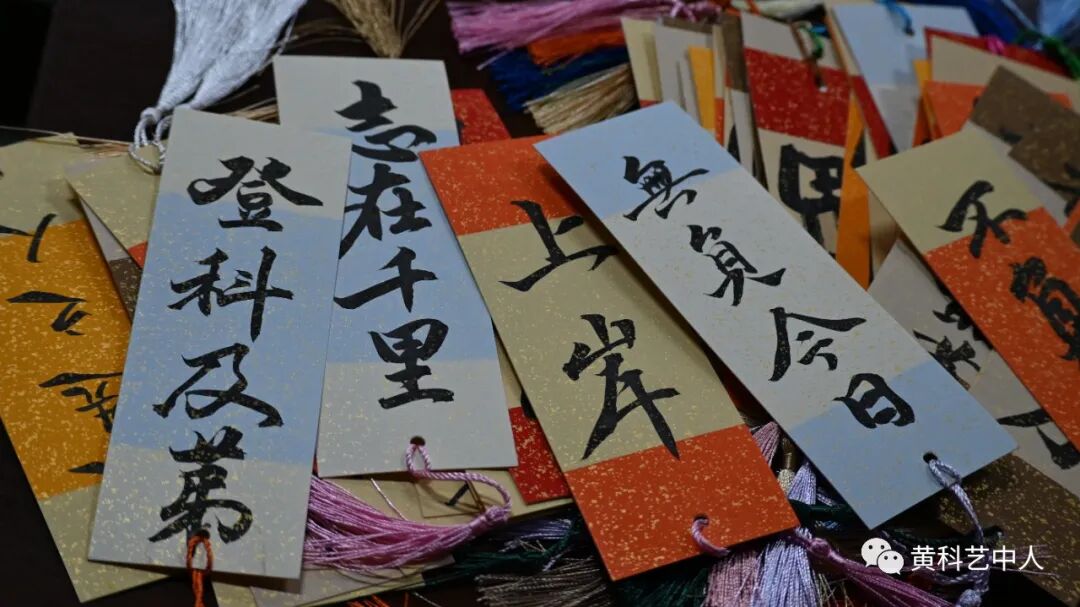 登科及第
志在千里
上岸
無負今日
不負
甲
黄科艺中人